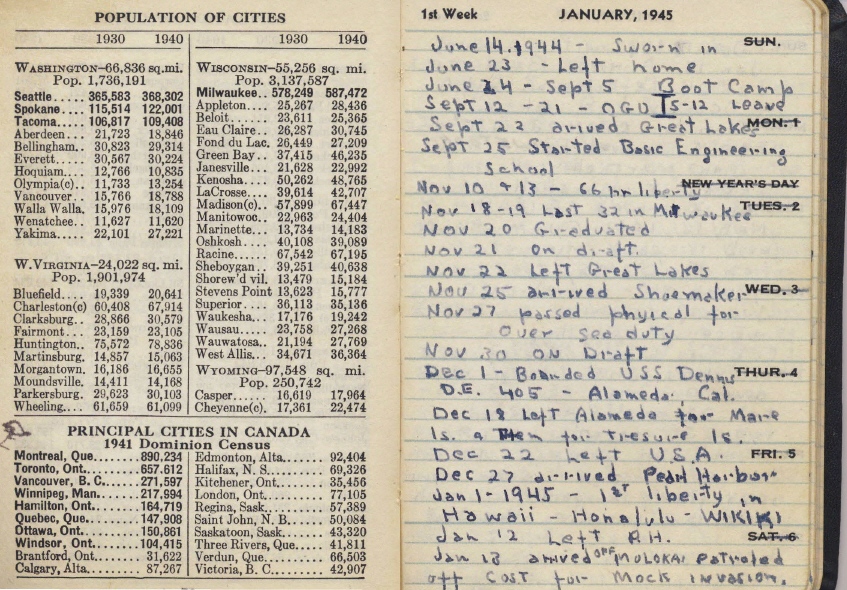 POPULATION OF CITIES
1930 1940
WASHINGTON—66,836 sq.mi.
Pop. 1,736,191
Seattle..... 365,583 368,302
Spokane.... 115,514 122,001
Tacoma.... 106,817 109,408
Aberdeen... 21,723 18,846
Bellingham.. 30,823 29,314
Everett..... 30,567 30,224
Hoquiam.... 12,766 10,835
Olympia(c).. 11,733 13,254
Vancouver.. 15,766 18,788
Walla Walla. 15,976 18,109
Wenatchee.. 11,627 11,620
Yakima..... 22,101 27,221
W.VIRGINIA—24,022 sq. mi.
Pop. 1,901,974
Bluefield.... 19,339 20,641
Charleston(c) 60,408 67,914
Clarksburg.. 28,866 30,579
Fairmont... 23,159 23,105
Huntington.. 75,572 78,836
Martinsburg. 14,857 15,063
Morgantown. 16,186 16,655
Moundsville. 14,411 14,168
Parkersburg. 29,623 30,103
Wheeling.... 61,659 61,099
1930 1940
WISCONSIN—55,256 sq. mi.
Pop. 3,137,587
Milwaukee.. 578,249 587,472
Appleton.... 25,267 28,436
Beloit....... 23,611 25,365
Eau Claire.. 26,287 30,745
Fond du Lac. 26,449 27,209
Green Bay.. 37,415 46,235
Janesville... 21,628 22,992
Kenosha.... 50,262 48,765
LaCrosse.... 39,614 42,707
Madison(c).. 57,899 67,447
Manitowoc.. 22,963 24,404
Marinette... 13,734 14,183
Oshkosh.... 40,108 39,089
Racine...... 67,542 67,195
Sheboygan.. 39,251 40,638
Shorew'd vil. 13,479 15,184
Stevens Point 13,623 15,777
Superior.... 36,113 35,136
Waukesha.. 17,176 19,242
Wausau..... 23,758 27,268
Wauwatosa.. 21,194 27,769
West Allis... 34,671 36,364
WYOMING—97,548 sq. mi.
Pop. 250,742
Casper...... 16,619 17,964
Cheyenne(c). 17,361 22,474
PRINCIPAL CITIES IN CANADA
1941 Dominion Census
Montreal, Que...... 890,234
Toronto, Ont....... 657,612
Vancouver, B. C.... 271,597
Winnipeg, Man..... 217,994
Hamilton, Ont...... 164,719
Quebec, Que....... 147,908
Ottawa, Ont........ 150,861
Windsor, Ont....... 104,415
Brantford, Ont..... 31,622
Calgary, Alta....... 87,267
Edmonton, Alta..... 92,404
Halifax, N. S........ 69,326
Kitchener, Ont...... 35,456
London, Ont........ 77,105
Regina, Sask........ 57,389
Saint John, N. B.... 50,084
Saskatoon, Sask..... 43,320
Three Rivers, Que... 41,811
Verdun, Que........ 66,503
Victoria, B. C....... 42,907
1st Week JANUARY, 1945
SUN.
June 14, 1944 - Sworn in
June 23 - Left home
June 24 - Sept 5 Boot Camp
Sept 12 - 21 - OGU 5-12 Leave
Sept 22 arrived Great Lakes MON. 1
Sept 25 Started Basic Engineering
School
Nov 10 + 13 - 66 hr liberty NEW YEAR'S DAY
Nov 18-19 Last 32 in Milwaukee TUES. 2
Nov 20 Graduated
Nov 21 on draft.
Nov 22 Left Great Lakes
Nov 25 arrived Shoemaker WED. 3
Nov 27 passed physical for
over sea duty
Nov 30 ON Draft
Dec 1 - Boarded USS Dennis THUR. 4
D.E. 405 - Alameda, Cal.
Dec 18 Left Alameda for Mare
Is. a Them for Tresure Is.
Dec 22 Left U.S.A. FRI. 5
Dec 27 arrived Pearl Harbor
Jan 1 - 1945 - 1st liberty in
Hawaii - Honolulu - WIKIKI
Jan 12 Left P.H. SAT. 6
Jan 13 arived OFF MOLOKAI Patroled
off Cost for Mock invasion.